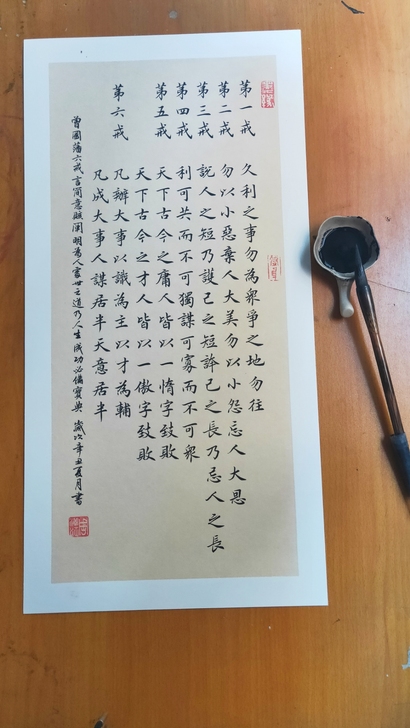 第一戒 久利之事勿為衆爭之地勿往
第二戒 勿以小惡棄人大美勿以小怨忘人大恩
第三戒 說人之短乃護己之短誇己之長乃忌人之長
第四戒 利可共而不可獨謀可寡而不可衆
第五戒 天下古今之庸人皆以一惰字致敗
天下古今之才人皆以一傲字致敗
第六戒 凡辦大事以識為主以才為輔
凡成大事人謀居半天意居半
曾國藩六戒言簡意賅闡明為人處世之道乃人生成功必備寶典 歲次辛丑夏月書